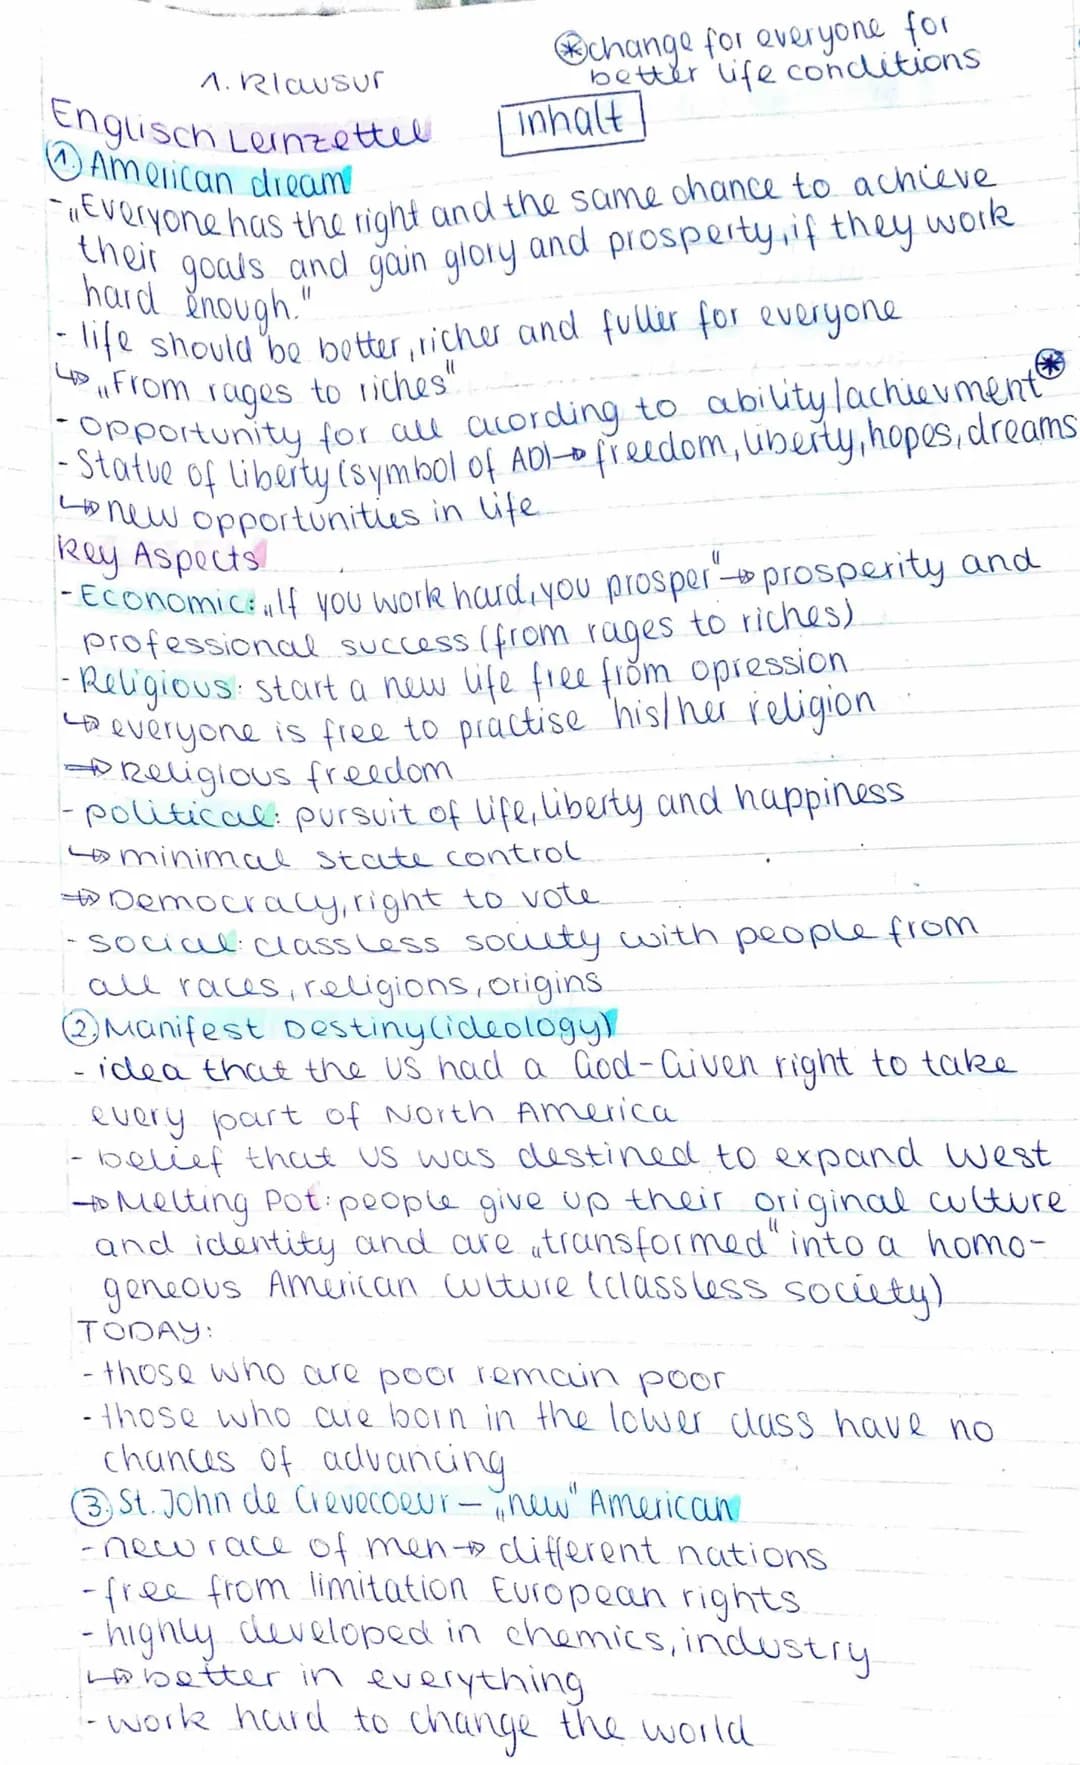 ⊛change for everyone for
better life conditions
1. Klausur
Englisch Lernzettel
Inhalt
①American dream
- „Everyone has the right and the same chance to achieve
their goals and gain glory and prosperty, if they work
hard enough."
- life should be better, richer and fuller for everyone
↳ „From rages to riches"
- opportunity for all acording to ability/achievment⊛
- Statue of liberty (symbol of AD)→ freedom, liberty, hopes, dreams
↳ new opportunities in life
Key Aspects
- Economic: „If you work hard, you prosper"→ prosperity and
professional success (from rages to riches)
- Religious: start a new life free from opression
↳ everyone is free to practise his/her religion
⇒ Religious freedom
- political: pursuit of life, liberty and happiness
↳ minimal state control
⇒ Democracy, right to vote
- social: classless society with people from
all races, religions, origins
②Manifest Destiny (ideology)
- idea that the US had a God-Given right to take
every part of North America
- belief that US was destined to expand West
→ Melting Pot: people give up their original culture
and identity and are „transformed" into a homo-
geneous American culture (classless society)
TODAY:
- those who are poor remain poor
- those who are born in the lower class have no
chances of advancing
③ St. John de Crevecoeur – „new" American
- new race of men → different nations
- free from limitation European rights
- highly developed in chemics, industry
↳ better in everything
- work hard to change the world